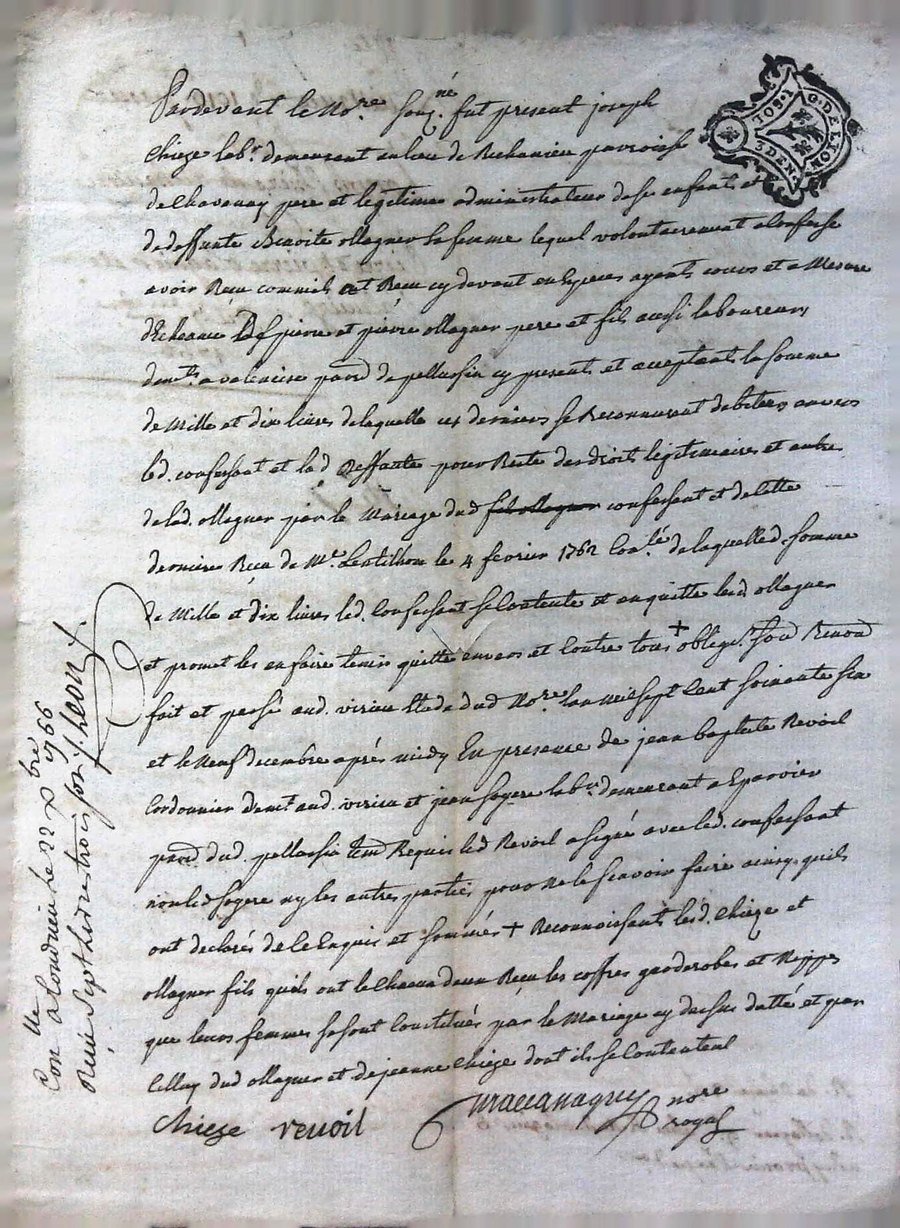 G. DE LYON
3 DEN.
Pardevant le No.re souz.né fut present joseph
Chieze lab.r demeurant au lieu de Richanieu parroisse
de Chavanay pere et legitime administrateur de ses enfants et
de deffunte Benoite ollagner sa femme lequel volontairement a Confessé
avoir Reçu comme il at Reçu cy devant en Especes ayants cours et a Mesure
d'Echeance de pierre et pierre ollagner pere et fils aussi laboureurs
dem.ts a valencize parr. de pellussin cy presents et acceptants la somme
de Mille et dix livres de laquelle ces derniers se Reconnurent debiteurs envers
led. confessant et lad. Deffunte pour Reste des droits legitimaires et autre
de lad. ollagner par le Mariage dud. fils ollagner confessant et de cette
derniere Reçu de M.e Lentilhon le 4 fevrier 1762 Con.lé de laquelle d. somme
de Mille et dix livres led. Confessant se Contente et en quitte lesd. ollagner
et promet les en faire tenir quitte envers et Contre tous + oblige.t soud. Renond
fait et passé aud. virieu Etude dud. No.re l'an mil sept Cent soixante six
et le Neuf decembre après midy En presence de jean baptiste Revoil
Cordonnier dem.t aud. virieu et jean soyere lab.r demeurant a Eparvier
parr. dud. pellussin tem. Requis led. Revoil a signé avec led. confessant
non led. soyere ny les autres parties pour ne le sçavoir faire ainsy quils
ont declarés de ce Enquis et sommés + Reconnoissants lesd. Chieze et
ollagner fils quils ont le Chacun deux Reçu les coffres garderobes et Nippes
que leurs femmes se sont Constitués par le Mariage cy dessus datté et par
Celluy dud. ollagner et de jeanne Chieze dont ils se Contentent
Chieze revoil nore
royal
Con.lle a Condrieu le 22 Xbre 1766
Reçu Sept livres trois sols